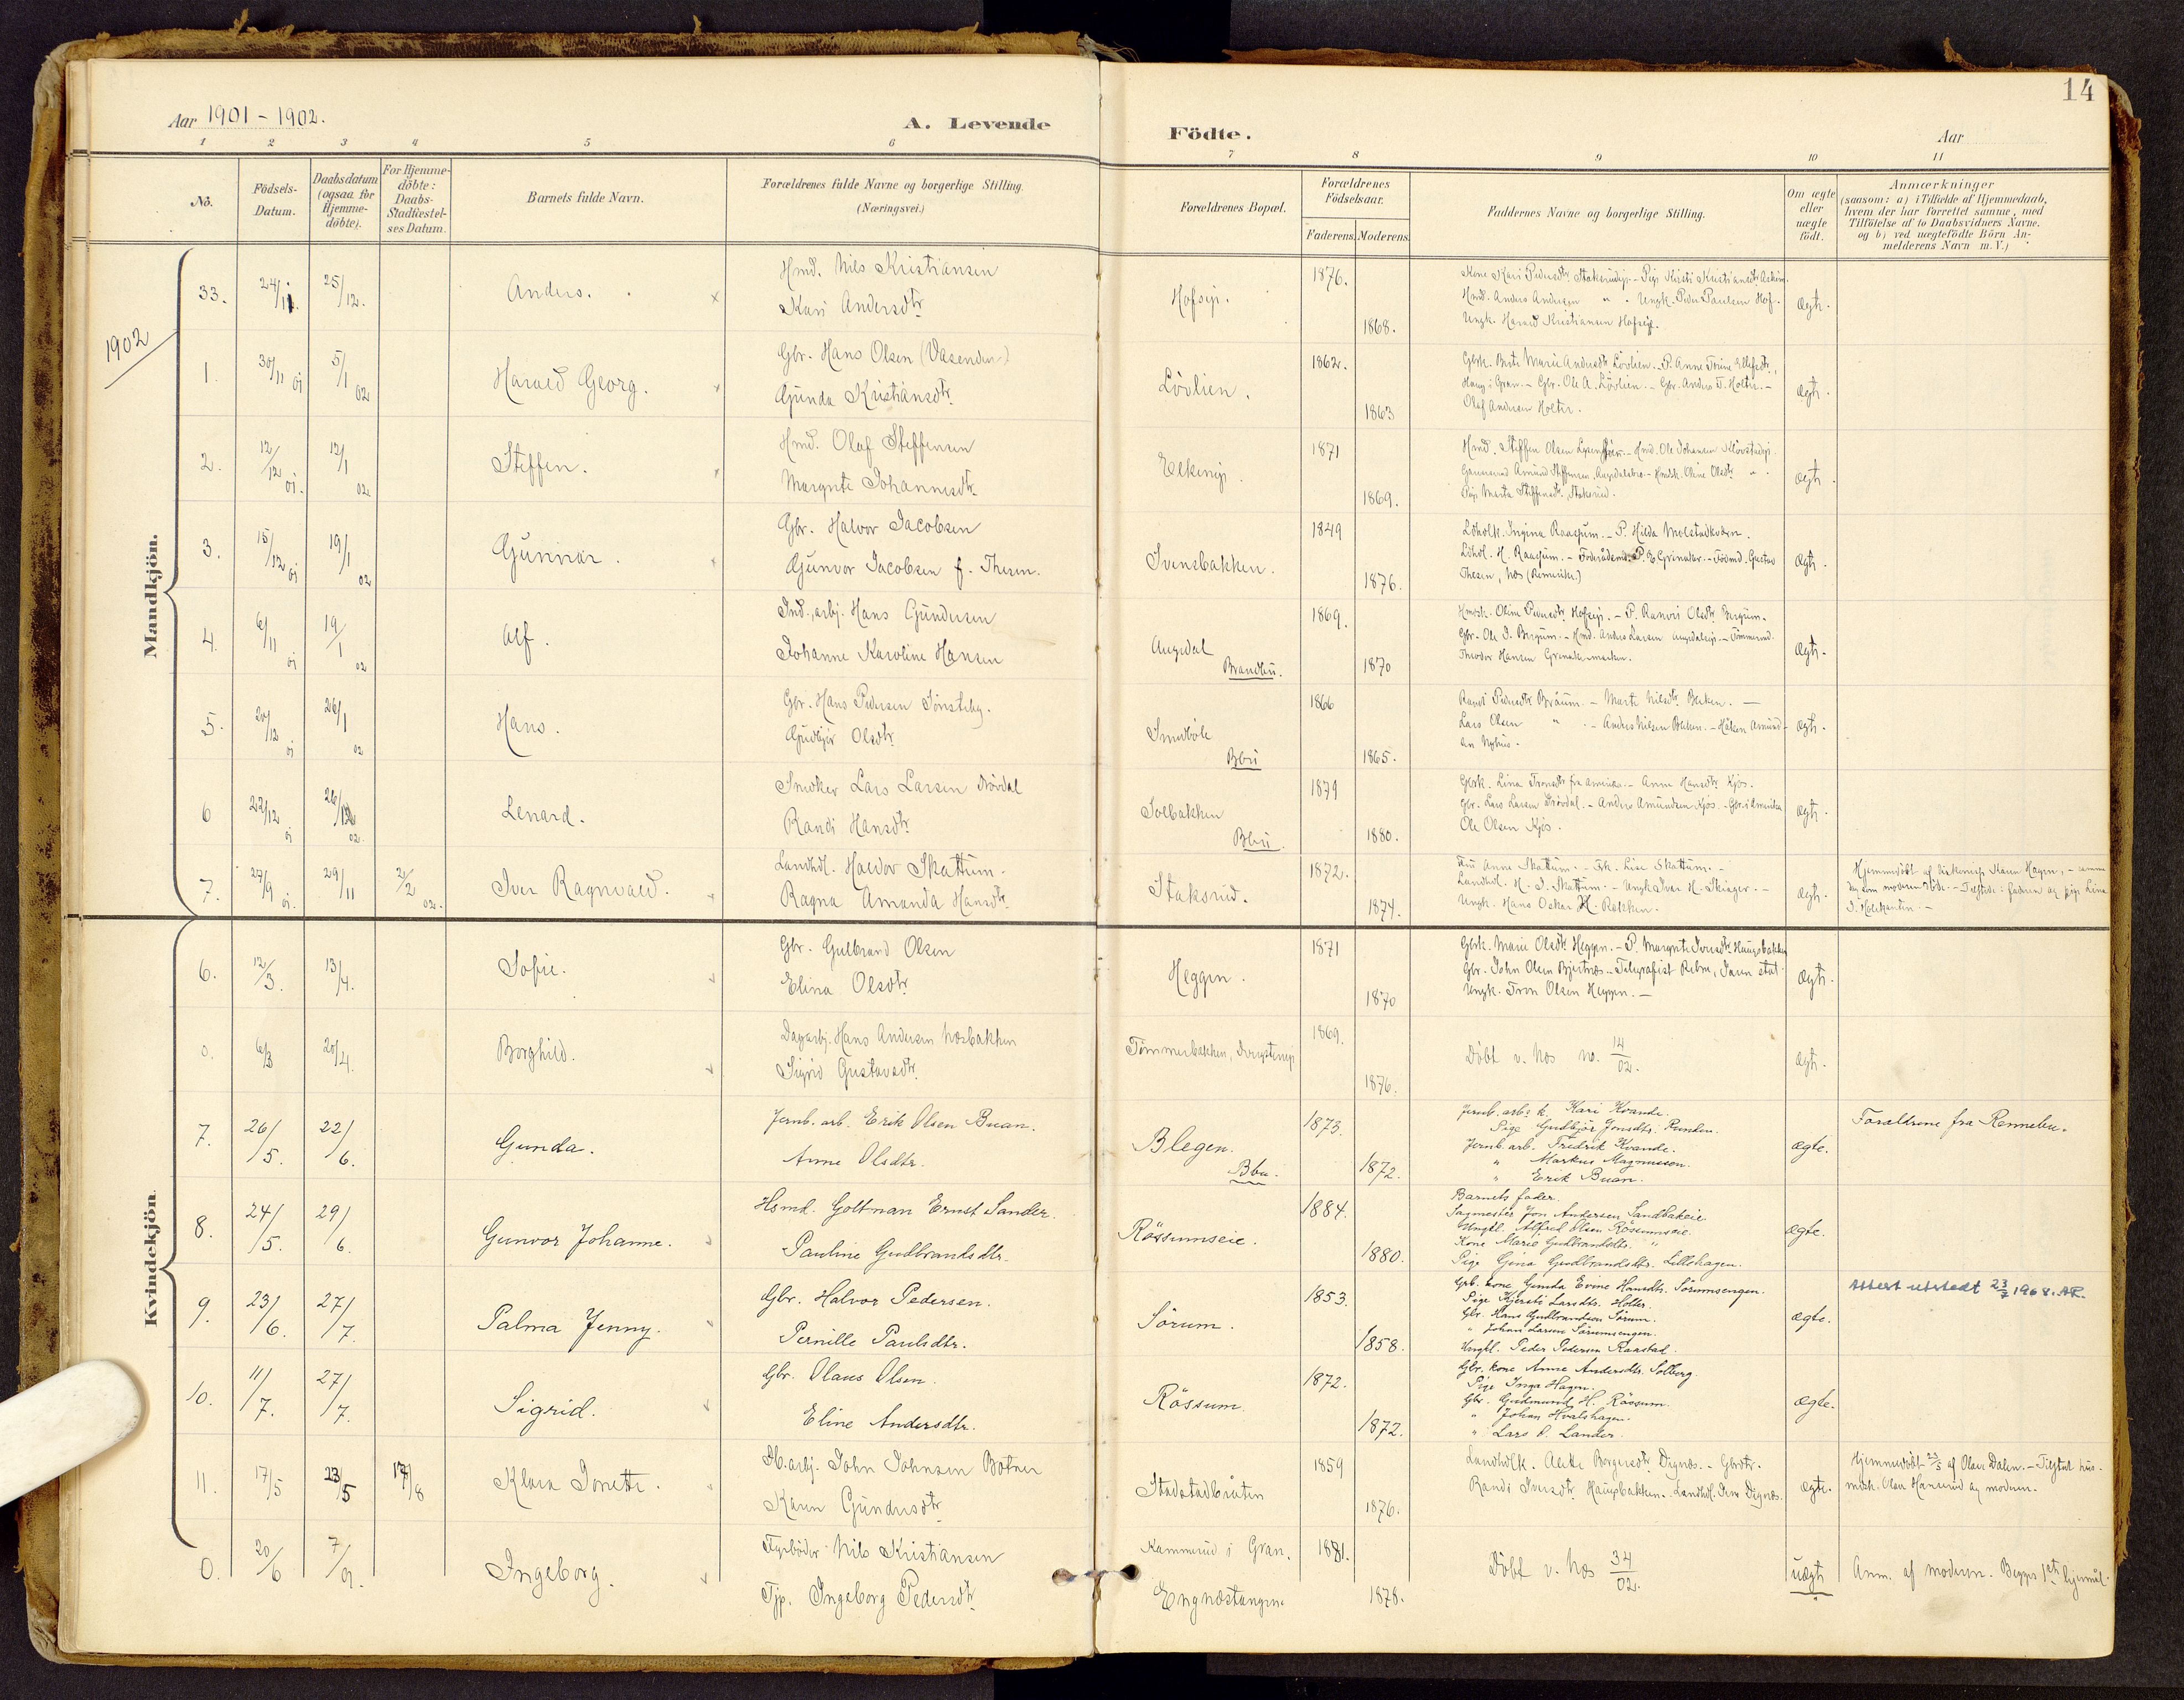 14
Aar 1901 - 1902.
A. Levende
Födte.
Aar
1 2 3 4 5 6 7 8 9 10 11
No.
Födsels-Datum.
Daabsdatum (ogsaa for Hjemme-döbte).
For Hjemme-döbte: Daabs-Stadfæstel-ses Datum.
Barnets fulde Navn.
Forældrenes fulde Navne og borgerlige Stilling.
(Næringsvei.)
Forældrenes Bopæl.
Forældrenes Födselsaar.
Faderens. Moderens.
Faddernes Navne og borgerlige Stilling.
Om ægte eller uægte födt.
Anmærkninger
(saasom: a) i Tilfælde af Hjemmedaab,
hvem der har forrettet samme, med
Tilföielse af to Daabsvidners Navne.
og b) ved uægtefödte Börn An-
melderens Navn m. V.)
Mandkjön.
33. 24/11. 25/12. Anders. Hmd. Nils Kristiansen
Kari Andersdtr.
Hofseje. 1876. 1868.
Hmd. Anders Andersen " - Ungk. Peder Paulsen Hof.
Ungk. Harald Kristiansen Hofseje.
Ægte.
1902
1. 30/11 01 5/1 02 Harald Georg. Gbr. Hans Olsen (Vasenden)
Gunda Kristiansdtr.
Lövlien. 1862. 1863
Gbrk. Berte Marie Andersdtr. Lövlien. - P. Anne Trine Ellefsdtr.,
Haug i Gran. - Gbr. Ole A. Lövlien. - Gbr. Anders T. Holter. -
Olaf Andersen Holter.
Ægte.
2. 12/12 01. 12/1 02. Steffen. Hmd. Olaf Steffensen
Margrete Johannesdtr.
1871 1869.
Pige Marta Steffensdtr. Staksrud.
Ægte.
3. 15/12 01 19/1 02 Gunnar. Gbr. Halvor Jacobsen
Gunvor Jacobsen f. Thesen.
Svensbakken. 1849 1876.
Thesen, Næs (Remmike)
Ægte.
4. 6/11 01 19/1 02 Alf. Ind.arbj. Hans Gundersen
Johanne Karoline Hansen
Augedal
Brandbu.
1869. 1870
Gbr. Ole I. Bergum. - Hmd. Anders Larsen Augedalseje. - Tömmermd.
Theodor Hansen
Ægte.
5. 20/12 01 26/1 02 Hans. Gbr. Hans Pedersen Sönsteby.
Gudbjör Olsdtr.
Smedböle
Bbu
1866 1865.
Randi Pedersdtr. Braaum. - Marte Nilsdtr. Bleken. -
Lars Olsen " - Anders Nilsen Bleken. - Håken Amund-
sen Nyhus.
Ægte.
6 22/12 01 26/1 02. Lenard. Snedker Lars Larsen Drövdal
Randi Hansdtr.
Solbakken
Bbu.
1879 1880.
Gbrk. Lina Tronsdtr. fra Amerika. - Anne Hansdtr. Kjos.
Gbr. Lars Larsen Drövdal. - Anders Amundsen Kjos. - Gbr. i Amerika
Ole Olsen Kjos.
Ægte.
7. 27/9 01. 29/11 2/2 02. Iver Ragnvald. Landhdl. Halvor Skattum.
Ragna Amanda Hansdtr.
Staksrud. 1872. 1874.
Fru Anne Skattum. - Frk. Lise Skattum. -
Landhdl. H. I. Skattum. - Ungk. Ivar H. Skiager. -
Ungk. Hans Oskar H. Rekken.
Ægte.
Hjemmedöbt af Diakonisse Karen Hagen, - samme
dag som moderen döde. - Tilstede: faderen og pige Lina
Kvindekjön.
6. 12/3. 13/4. Sofie. Gbr. Gulbrand Olsen
Elina Olsdtr.
Heggen. 1871 1870
Gbrk. Marie Olsdtr. Heggen. - P. Margrete Iversdtr. Haugsbakken
Gbr. John Olsen Bjertnæs. - Telegrafist
Ungk. Tron Olsen Heggen. -
Ægte.
0. 6/3 20/4. Borghild. Dagarbj. Hans Andersen Næsbakken
Sigrid Gustavsdtr.
1869. 1876.
Döbt v. Næs no. 14/02.
Ægte.
7. 26/5. 22/6. Gunda. Jernb. arb. Erik Olsen Buan.
Anne Olsdtr.
Blegen.
Bbu.
1873. 1872.
Jernb. arb.s k. Kari Kvande.
Pige Gudbjör Jonsdtr. Runden.
Jernb. arb. Fredrik Kvande.
" Markus Magnussen.
" Erik Buan.
ægte.
Forældrene fra Rennebu.
8. 24/5. 29/6. Gunvor Johanne. Hsmd. Goltman Ernst Sander.
Pauline Gudbrandsdtr.
Røssumseie. 1884. 1880.
Barnets fader.
Sagmester Jon Andersen Sandbakeie.
Ungkl. Alfred Olsen Røssumseie.
Kone Marie Gudbrandsdtr. "
Pige Gina Gudbrandsdtr. Lillehagen.
ægte.
9. 23/6. 27/7. Palma Jenny. Gbr. Halvor Pedersen.
Pernille Paulsdtr.
Sörum. 1853. 1858.
Gbr. kone Gunda Evine Hansdtr. Sörumsengen.
Pige Kjersti Larsdtr. Holter.
Gbr. Hans Gudbrandsen Sörum.
" Johan Larsen Sörumsengen.
Ungkl. Peder Pedersen Raastad.
ægte.
Attest utstedt 23/7 1968. AR.
10. 11/7. 27/7. Sigrid. Gbr. Olaus Olsen.
Eline Andersdtr.
Røssum. 1872. 1872.
Gbr. kone Anne Andersdtr. Solberg.
Pige Inga Hagen.
Gbr. Gudmund H. Røssum.
" Johan Hvalshagen.
" Lars O. Lander.
ægte.
11. 17/5 23/5 17/8 Klara Jonette. Jb.arbj. John Johnsen Botner
Karen Gundersdtr.
Stadstadbråten 1859 1876.
Randi Iversdtr. Haugsbakken. Landhdl. Iver Dignæs.
ægte.
Hjemmedöbt 23/5 af Olava Dalen. - Tilstede hus-
mdsk. Olea Hansrud og moderen.
0. 20/6 7/9. Ingeborg. Fyrböder Nils Kristiansen
Tjp. Ingeborg Pedersdtr.
Kammerud i Gran.
Engnæstangen.
1881. 1878.
Döbt v. Næs 34/02.
uægte
Anm. af moderen. Begges 1ste lejermål.